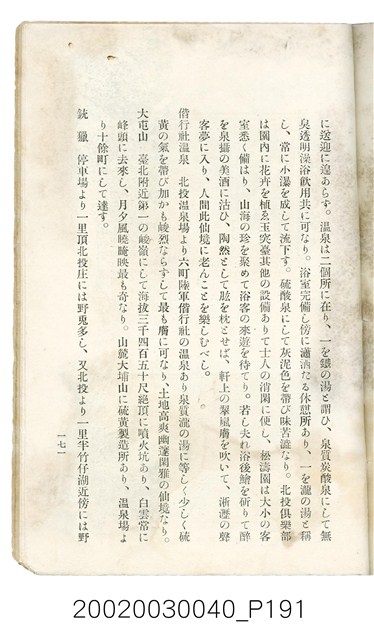 に送迎に遑あらず。温泉は二個所に在り、一を鐵の湯と謂ひ、泉質炭酸泉にして無
臭透明深浴飲用共に可なり。浴室完備し傍に瀟洒たる休憩所あり、一を瀧の湯と稱
し、常に小瀑を成して流下す。硫酸泉にして灰泥色を帶び味苦澁なり。北投俱樂部
は園內に花卉を植ゑ玉突臺其他の設備ありて士人の消閑に便し、松濤園は大小の客
室悉く備はり、山海の珍を聚めて浴客の來遊を待てり。若し夫れ浴後鱠を斫りて醉
を泉攝の美酒に沽ひ、陶然として肱を枕とせば、軒上の翠風膚を吹いて、淅瀝の聲
客夢に入り、人間此仙境に老んことを樂しむべし。
偕行社温泉 北投温泉場より六町陸軍偕行社の温泉あり泉質瀧の湯に等しく少しく硫
黃の氣を帶び加かも峻烈ならずして最も膚に可なり、土地高爽幽邃閑雅の仙境なり。
大屯山 臺北附近第一の峻嶺にして海拔三千四百五十尺絕頂に噴火坑あり、白雲常に
峰頭に去來し、月夕風曉晻映最も奇なり。山麓大埔山に硫黃製造所あり、温泉場よ
り十餘町にして達す。
銃獵 停車場より一里頂北投庄には野兎多し、又北投より一里半竹仔湖近傍には野
一七一
20020030040_P191